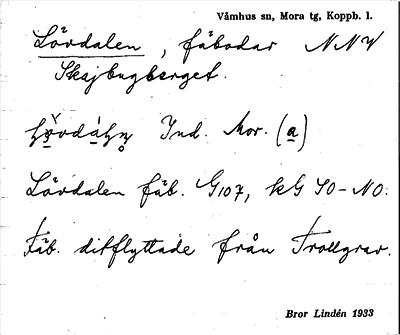 Våmhus sn, Mora tg, Koppb. l.
Lövdalen, fäbodar NNV
Skajbugberget.
Ind. Mor. (a)
Lövdalen fäb. G107, kG SO-NO.
Fäb. ditflyttade från Trollgrav.
Bror Lindén 1933